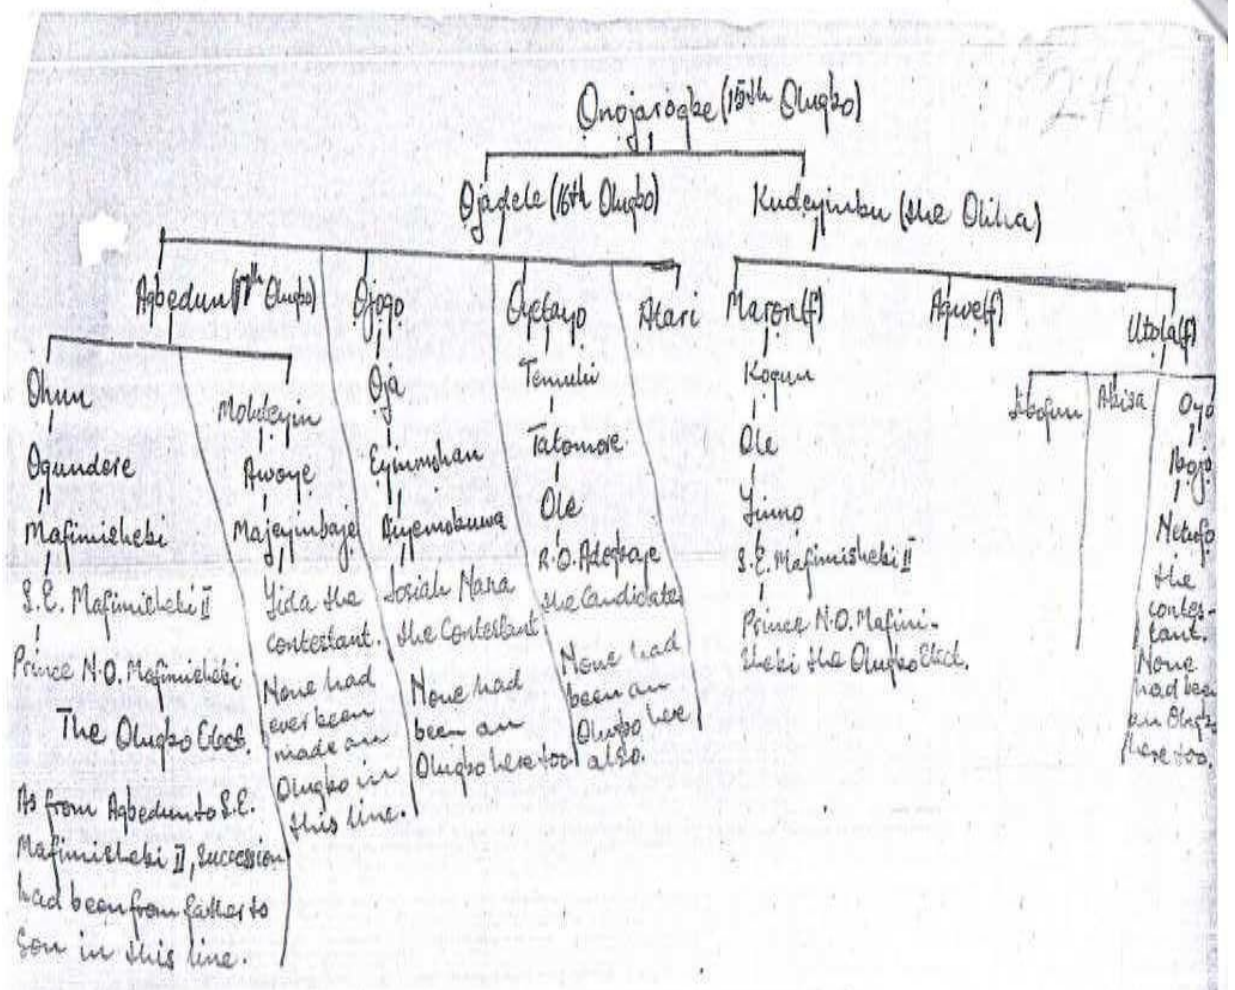 Onojarogbe (15th Olugbo)
Ojadele (16th Olugbo)
Kudeyinbu (the Oliha)
Agbedun (17th Olugbo)
Ojogo
Oyetayo
Atari
Maron(f)
Agwe(f)
Utola(f)
Ohun
Ogundere
Mafimishebi
S.E. Mafimishebi II
Prince N.O. Mafimishebi
The Olugbo Elect.
As from Agbedun to S.E.
Mafimishebi II, succession
had been from father to
Son in this line.
Awoye
Majeyinbaje
Yida the
contestant.
None had
ever been
made an
Olugbo in
this line.
Oja
Eyinmshan
Aiyemobuwa
Josiah Nana
the Contestant
None had
been an
Olugbo here too
Temulu
Talomore
Ole
the Candidate
None had
been an
Olugbo here
also.
Kogun
Ole
Yinno
S.E. Mafimishebi II
Prince N.O. Mafimi-
shebi the Olugbo Elect.
Abisa
Oyo
the
contes-
tant.
None
had been
an
here too.